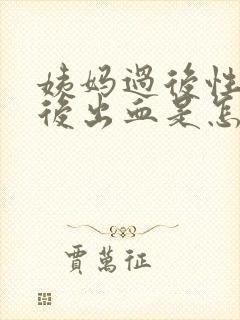 姨妈過後性
後出血是怎
賈萬征